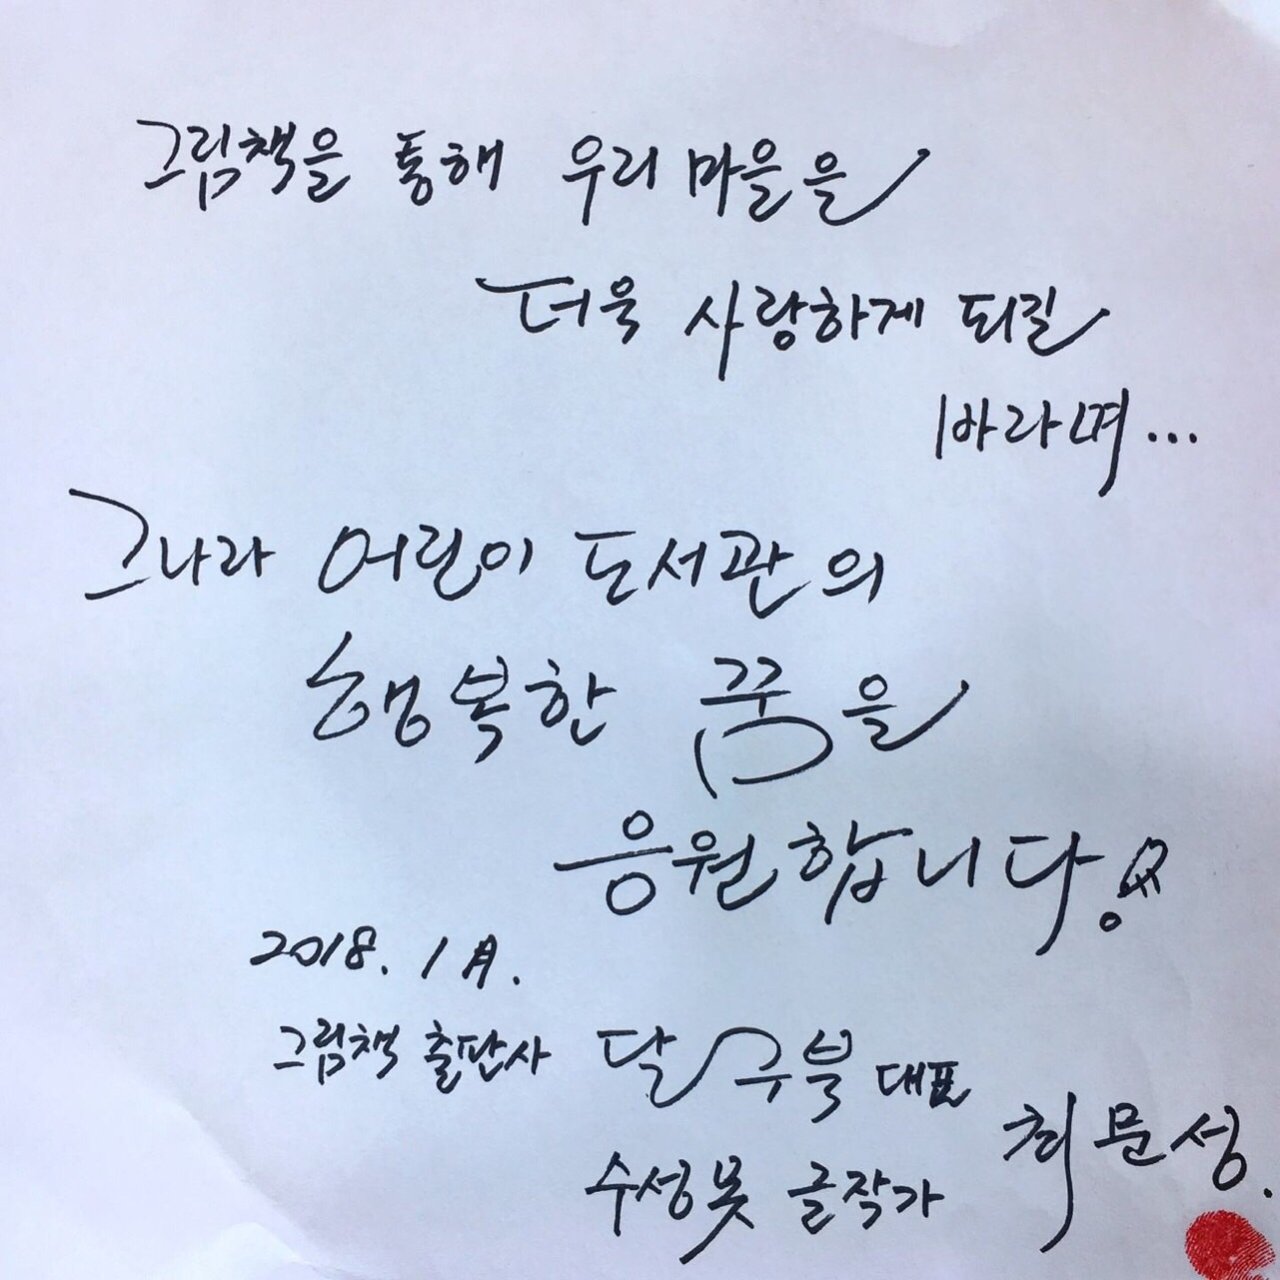 그림책을 통해 우리 마을을
더욱 사랑하게 되길
바라며...
그나라 어린이 도서관의
행복한 꿈을
응원합니다!
2018. 1月.
그림책 출판사 달구북 대표
수성못 글작가 최문성.